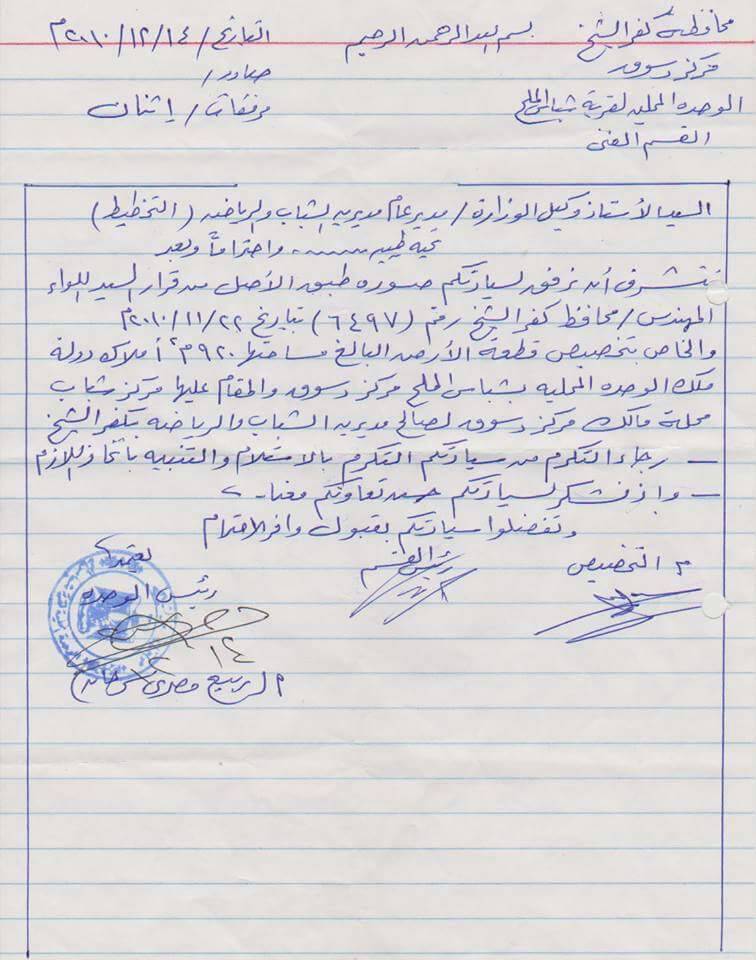 محافظة كفر الشيخ
بسم الله الرحمن الرحيم
التاريخ / ١٤ / ١٢ / ٢٠١٠م
مركز دسوق
صادر /
الوحده المحليه لقرية شباس الملح
مرفقات / إثنان
القسم الفنى
السيد الأستاذ وكيل الوزارة / مدير عام مديريه الشباب والرياضه (التخطيط)
تحيه طيبه ...... واحتراماً وبعد
نتشرف أن نرفق لسيادتكم صوره طبق الأصل من قرار السيد اللواء
المهندس / محافظ كفر الشيخ رقم (٦٤٩٧) بتاريخ ٢٢ / ١١ / ٢٠١٠م
والخاص بتخصيص قطعة الأرض البالغ مساحتها ٩٢٠م٢ أملاك دولة
ملك الوحده المحليه بشباس الملح مركز دسوق والمقام عليها مركز شباب
محلة مالك مركز دسوق لصالح مديريه الشباب والرياضه بكفر الشيخ
– رجاء التكرم من سيادتكم التكرم بالاستلام والتنبيه باتخاذ اللازم
– وإذ نشكر لسيادتكم حسن تعاونكم معنا -
وتفضلوا سيادتكم بقبول وافر الاحترام
م التخصيص
رئيس القسم
يعتمد
رئيس الوحده
١٤